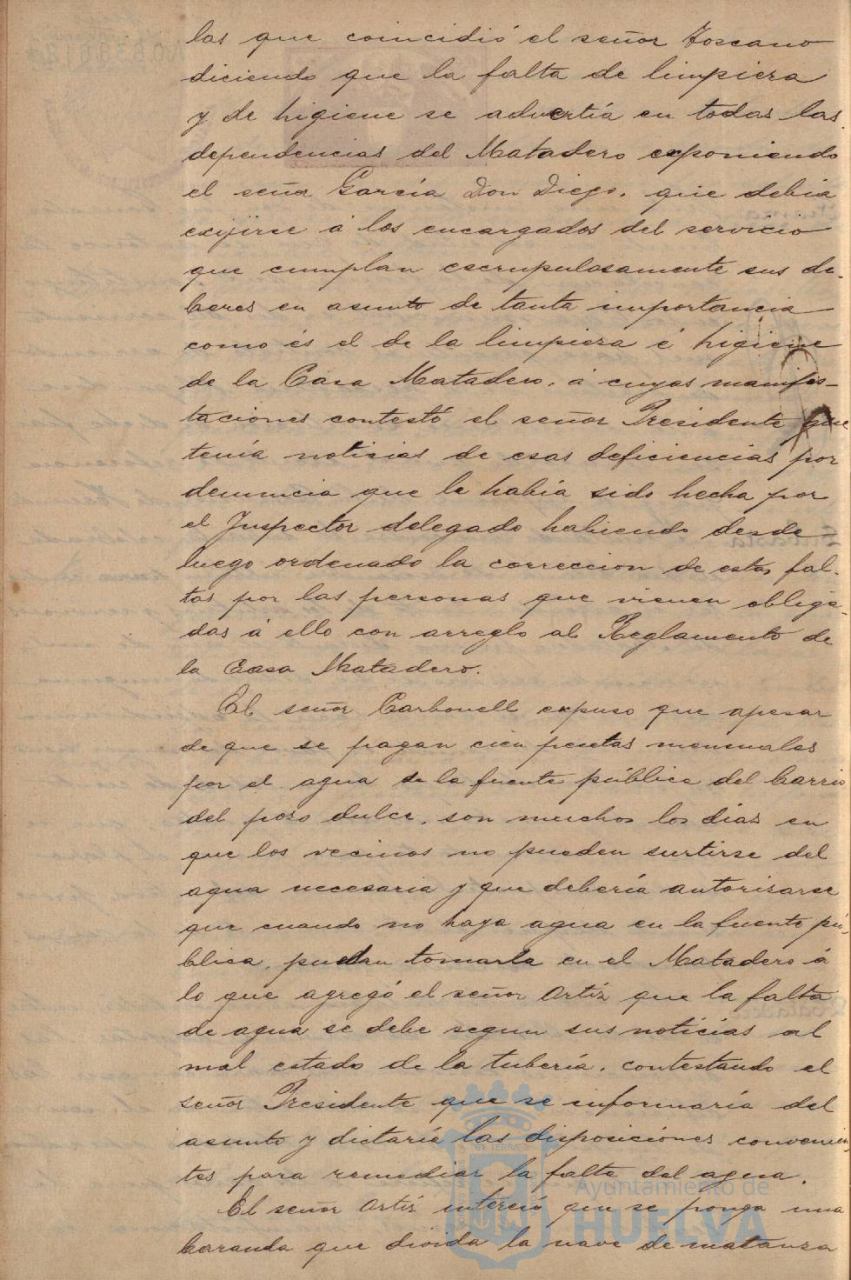 las que coincidió el señor Toscano
diciendo que la falta de limpieza
y de higiene se advertía en todas las
dependencias del Matadero exponiendo
el señor García Don Diego, que debia
exijirse á los encargados del servicio
que cumplan escrupulosamente sus de-
beres en asunto de tanta importancia
como és el de la limpieza é higiene
de la Casa Matadero, á cuyas manifes-
taciones contestó el señor Presidente que
tenía noticias de esas deficiencias por
denuncia que le había sido hecha por
el Inspector delegado habiendo desde
luego ordenado la correccion de estas fal-
tas por las personas que vienen obliga-
das á ello con arreglo al Reglamento de
la Casa Matadero.
El señor Carbonell expuso que apesar
de que se pagan cien pesetas mensuales
por el agua de la fuente pública del barrio
del pozo dulce, son muchos los días en
que los vecinos no pueden surtirse del
agua necesaria y que debería autorisarse
que cuando no haya agua en la fuente pú-
blica, puedan tomarla en el Matadero á
lo que agregó el señor Ortiz que la falta
de agua se debe segun sus noticias al
mal estado de la tubería, contestando el
señor Presidente que se informaría del
asunto y dictaría las disposiciónes convenien-
tes para remediar la falta del agua.
El señor Ortiz interesó que se ponga una
baranda que divida la nave de matanza
Ayuntamiento de
HUELVA